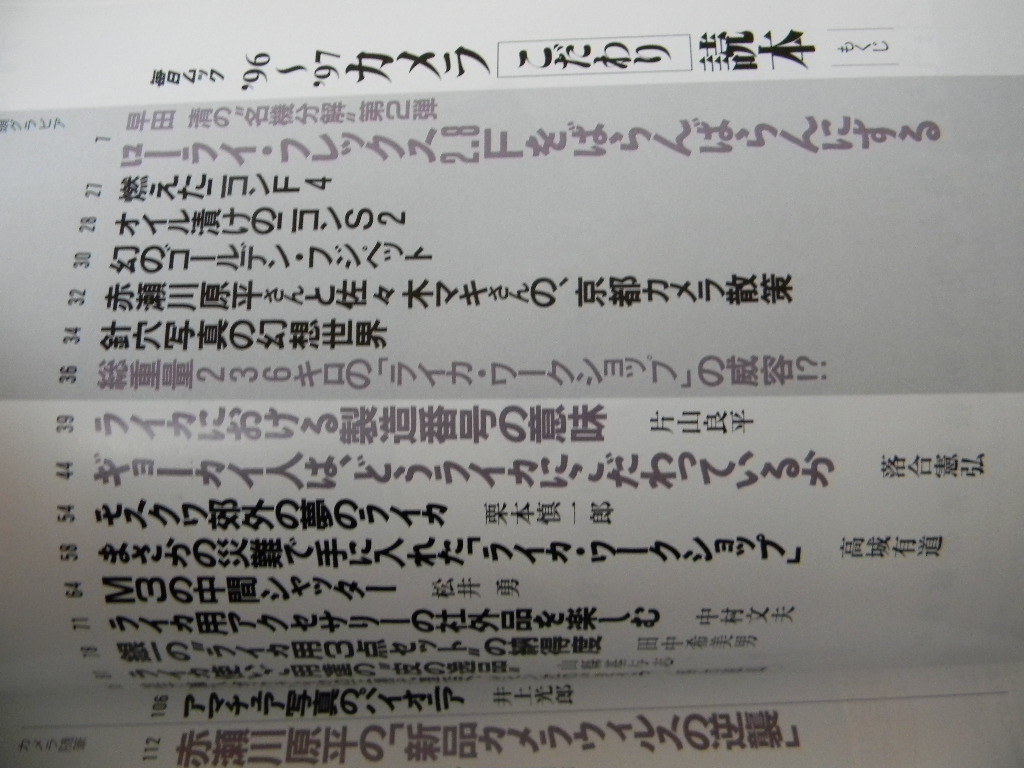 毎日ムック
'96〜'97カメラこだわり読本
もくじ
早田 清の"名機分解"第2弾
7 ローライ・フレックス2.8Fをばらんばらんにする
27 燃えたニコンF4
28 オイル漬けのニコンS2
30 幻のゴールデン・フジペット
32 赤瀬川原平さんと佐々木マキさんの、京都カメラ散策
34 針穴写真の幻想世界
36 総重量236キロの「ライカ・ワークショップ」の威容!?
39 ライカにおける製造番号の意味 片山良平
44 ギョーカイ人は、どうライカにこだわっているか 落合憲弘
54 モスクワ郊外の夢のライカ 栗本慎一郎
58 まさかの災難で手に入れた「ライカ・ワークショップ」 高城有道
64 M3の中間シャッター 松井 勇
71 ライカ用アクセサリーの社外品を楽しむ 中村文夫
78 銀一の"ライカ用3点セット"の納得度 田中希美男
106 アマチュア写真のパイオニア 井上光郎
112 赤瀬川原平の「新品カメラウイルスの逆襲」